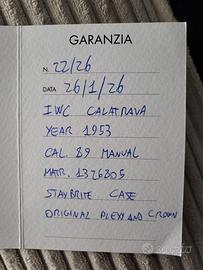 GARANZIA
N. 22/26
DATA 26/1/26
IWC CALATRAVA
YEAR 1953
CAL. 89 MANUAL
MATR. 1326805
STAYBRITE CASE
ORIGINAL PLEXI AND CROWN
subito